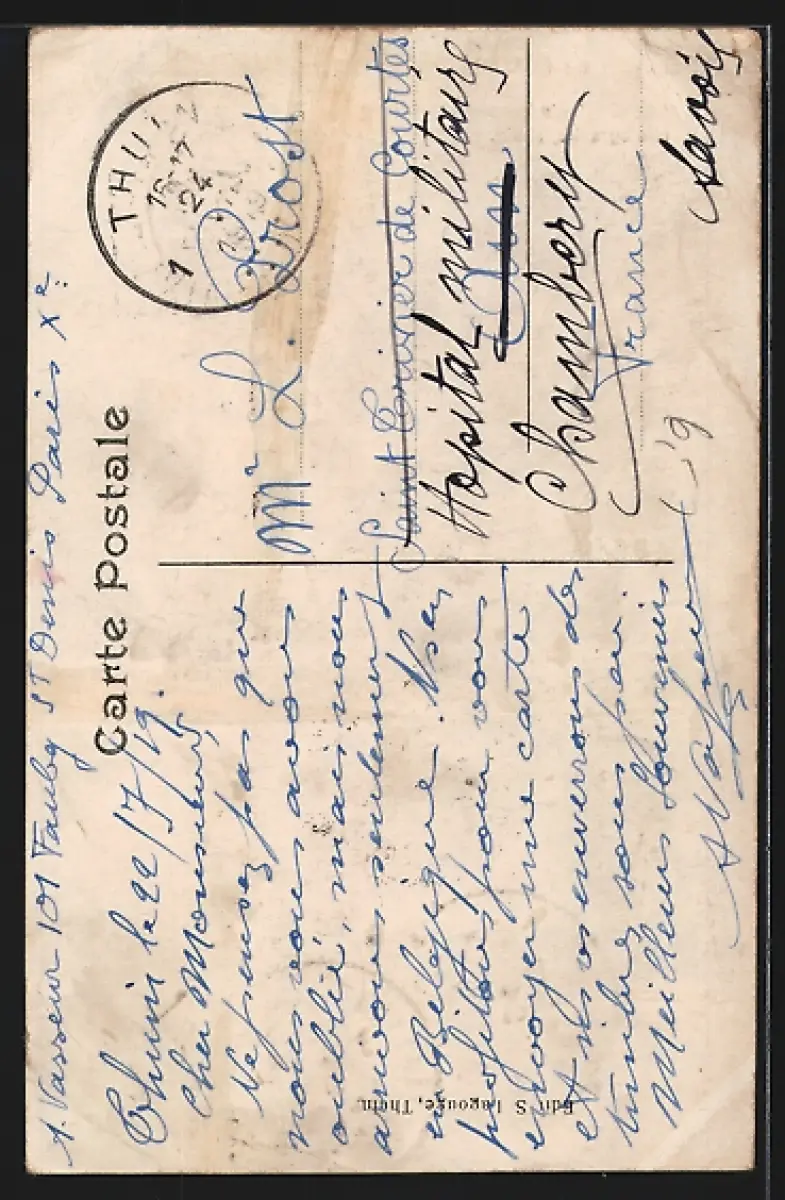 A. Vasseur 101 Faubg St Denis Paris Xe
Carte Postale
THUIN
17
24
1
Thuin le 22/7/19.
Cher Monsieur,
Ne pensez pas que
nous vous avons
oublié, mais nous
avons seulement
en Belgique. Ns en
profitons pour vous
envoyer une carte
et ns vs enverrons des
timbres sous peu.
Meilleurs Souvenirs
A Vasseur
Mr L. Prost
Saint Trivier de Courtes
Hopital militaire
Ain
Chambery
France
Savoie
Edit. S. Lagouge, Thuin.